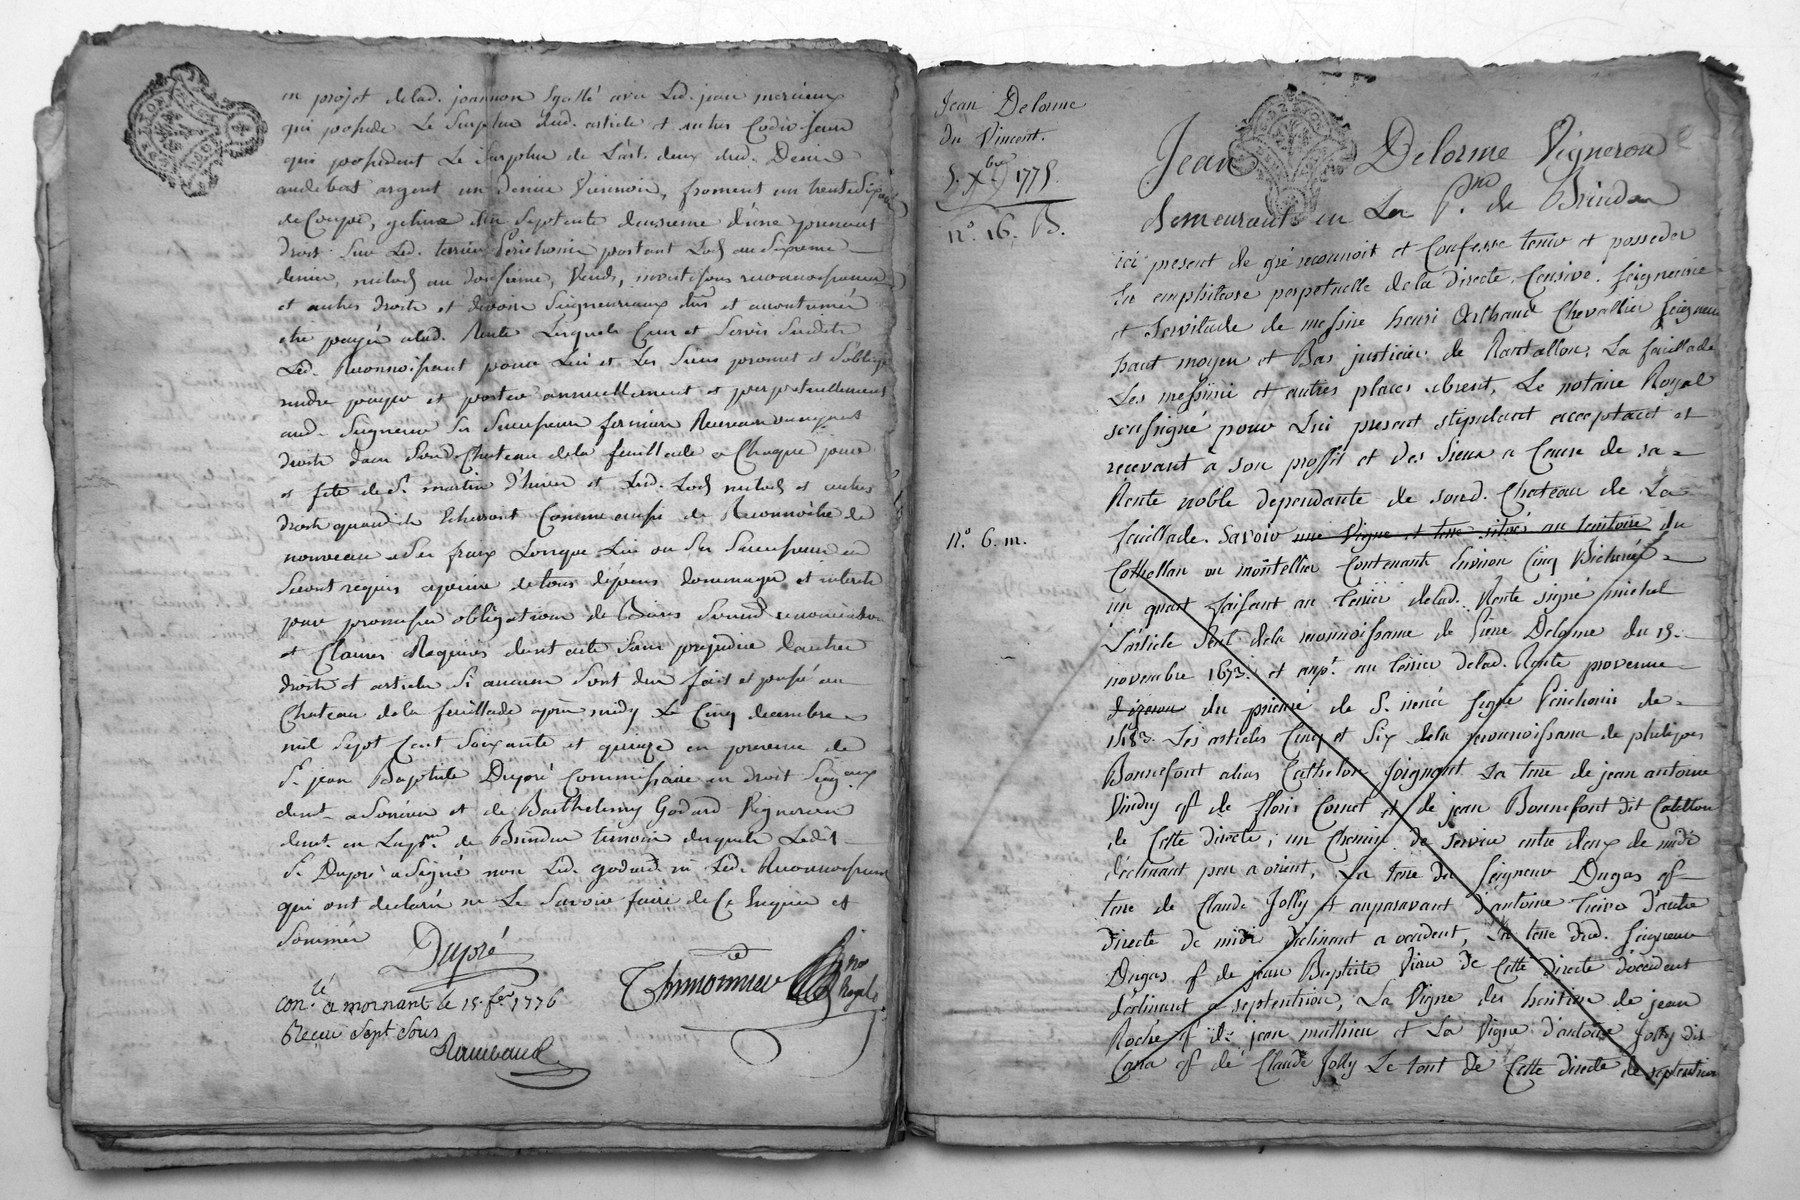 en projet delad. joannon égallé avec Led. jean mercieux
qui possede Le Surplus dud. article et autres Codiviseurs
qui possedent Le Surplus de L'art. deux dud. Denis
audebat argent un denier Viennois, froment un trente Sixe
de Coupe, geline un Septente deuxieme d'une prenant
droit Sur Led. terrier Perichonis portant Lods au Sixieme
denier, milods au douzieme, Vends, investisons reconnoissances
et autres droits et devoirs Seigneuriaux dus et accoutumés
etre payés alad. Rente Lesquels Cens et Servis Susdits
Led. Reconnoissant pour Lui et Les Siens promet et S'oblige
rendre payer et porter annuellement et perpetuellement
aud. Seigneur Ses Successeurs fermiers Receveurs
droits dans Sond. Chateau dela feuillade a Chaque jour
et fête de St. martin d'hiver et Lesd. Lods milods et autres
droits quand ils Echerront Comme aussi de Reconnoitre de
nouveau a Ses frais Lorsque Lui ou Ses Successeurs en
Seront requis apeine detous dépens dommages et interets
pour promesses obligations de Biens Soumis renonciation
et Clauses Requises dont acte Sans prejudice d'autres
droits et articles Si aucuns Sont dus fait et passé au
Chateau dela feuillade après midy Le Cinq decembre
mil Sept Cent Soixante et quinze en presence de
Sr. jean Baptiste Dupré Commissaire en droit Seigaux
demt. a Soucieu et de Barthelemy Godard Vigneron
demt. en Lad. psse. de Brindas temoins desquels Ledit
Sr. Dupré a Signé non Led. godard ni Led. Reconnoissant
qui ont declaré ne Le Savoir faire de Ce Enquis et
Sommés
Dupré
Thimonnier
nre Royal
conlé a mornant le 15. fer. 1776
Recu Sept Sous
Rambaud
Jean Delorme
du Vincent.
5. Xbre 1775.
n.º 16. B.
Jean Delorme Vigneron
demeurant en La Psse. de Brindas
ici present de gré reconnoit et Confesse tenir et posseder
En emphiteose perpetuelle dela directe, Censive, Seigneurie
et Servitude de messire henri Arthaud Chevallier Seigneur
haut moyen et Bas justicier de Rontallon, La feuillade
Les messimi et autres places absent, Le notaire Royal
soussigné pour Lui present stipulant acceptant et
recevant à son proffit et des Siens a Cause de sa
Rente noble dependante de sond. Chateau de La
n.º 6. m.
feuillade. Savoir une Vigne et terre situés au territoire du
Cathellan ou montellier Contenante Environ Cinq Bicherées
un quart faisant au terrier delad. Rente signé michel
L'article Seul dela reconnoissance de Pierre Delorme du 15.
novembre 1673. et anpt. au terrier delad. Rente provenue
du prieuré de St. irenée signé Perichonis de
1583. Les articles Cinq et Six dela reconnoissance de philipes
Bonnefont alias Cathelon Joignant La terre de jean antoine
Vindry qf de floris Cornet et de jean Bonnefont dit Catellon
de Cette directe, un Chemin de Service entre deux de midi
déclinant peu a orient, La terre du Seigneur Dugas qf
terre de Claude Jolly et auparavant d'antoine d'autre
directe de midi declinant a occident, La terre dud. Seigneur
Dugas qf de jean Baptiste Viau de Cette directe d'occident
déclinant a septentrion, La Vigne des heritiers de jean
Roche qf de jean mathieu et La Vigne d'antoine Jolly dit
Cana qf de Claude Jolly Le tout de Cette directe de septentrion